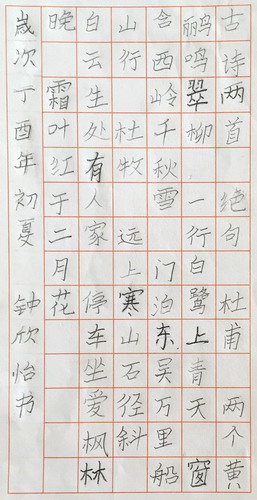 古诗两首 绝句 杜甫 两个黄
鹂鸣翠柳 一行白鹭上青天 窗
含西岭千秋雪 门泊东吴万里船
山行 杜牧 远上寒山石径斜
白云生处有人家 停车坐爱枫林
晚 霜叶红于二月花
嵗次丁酉年初夏 钟欣怡书